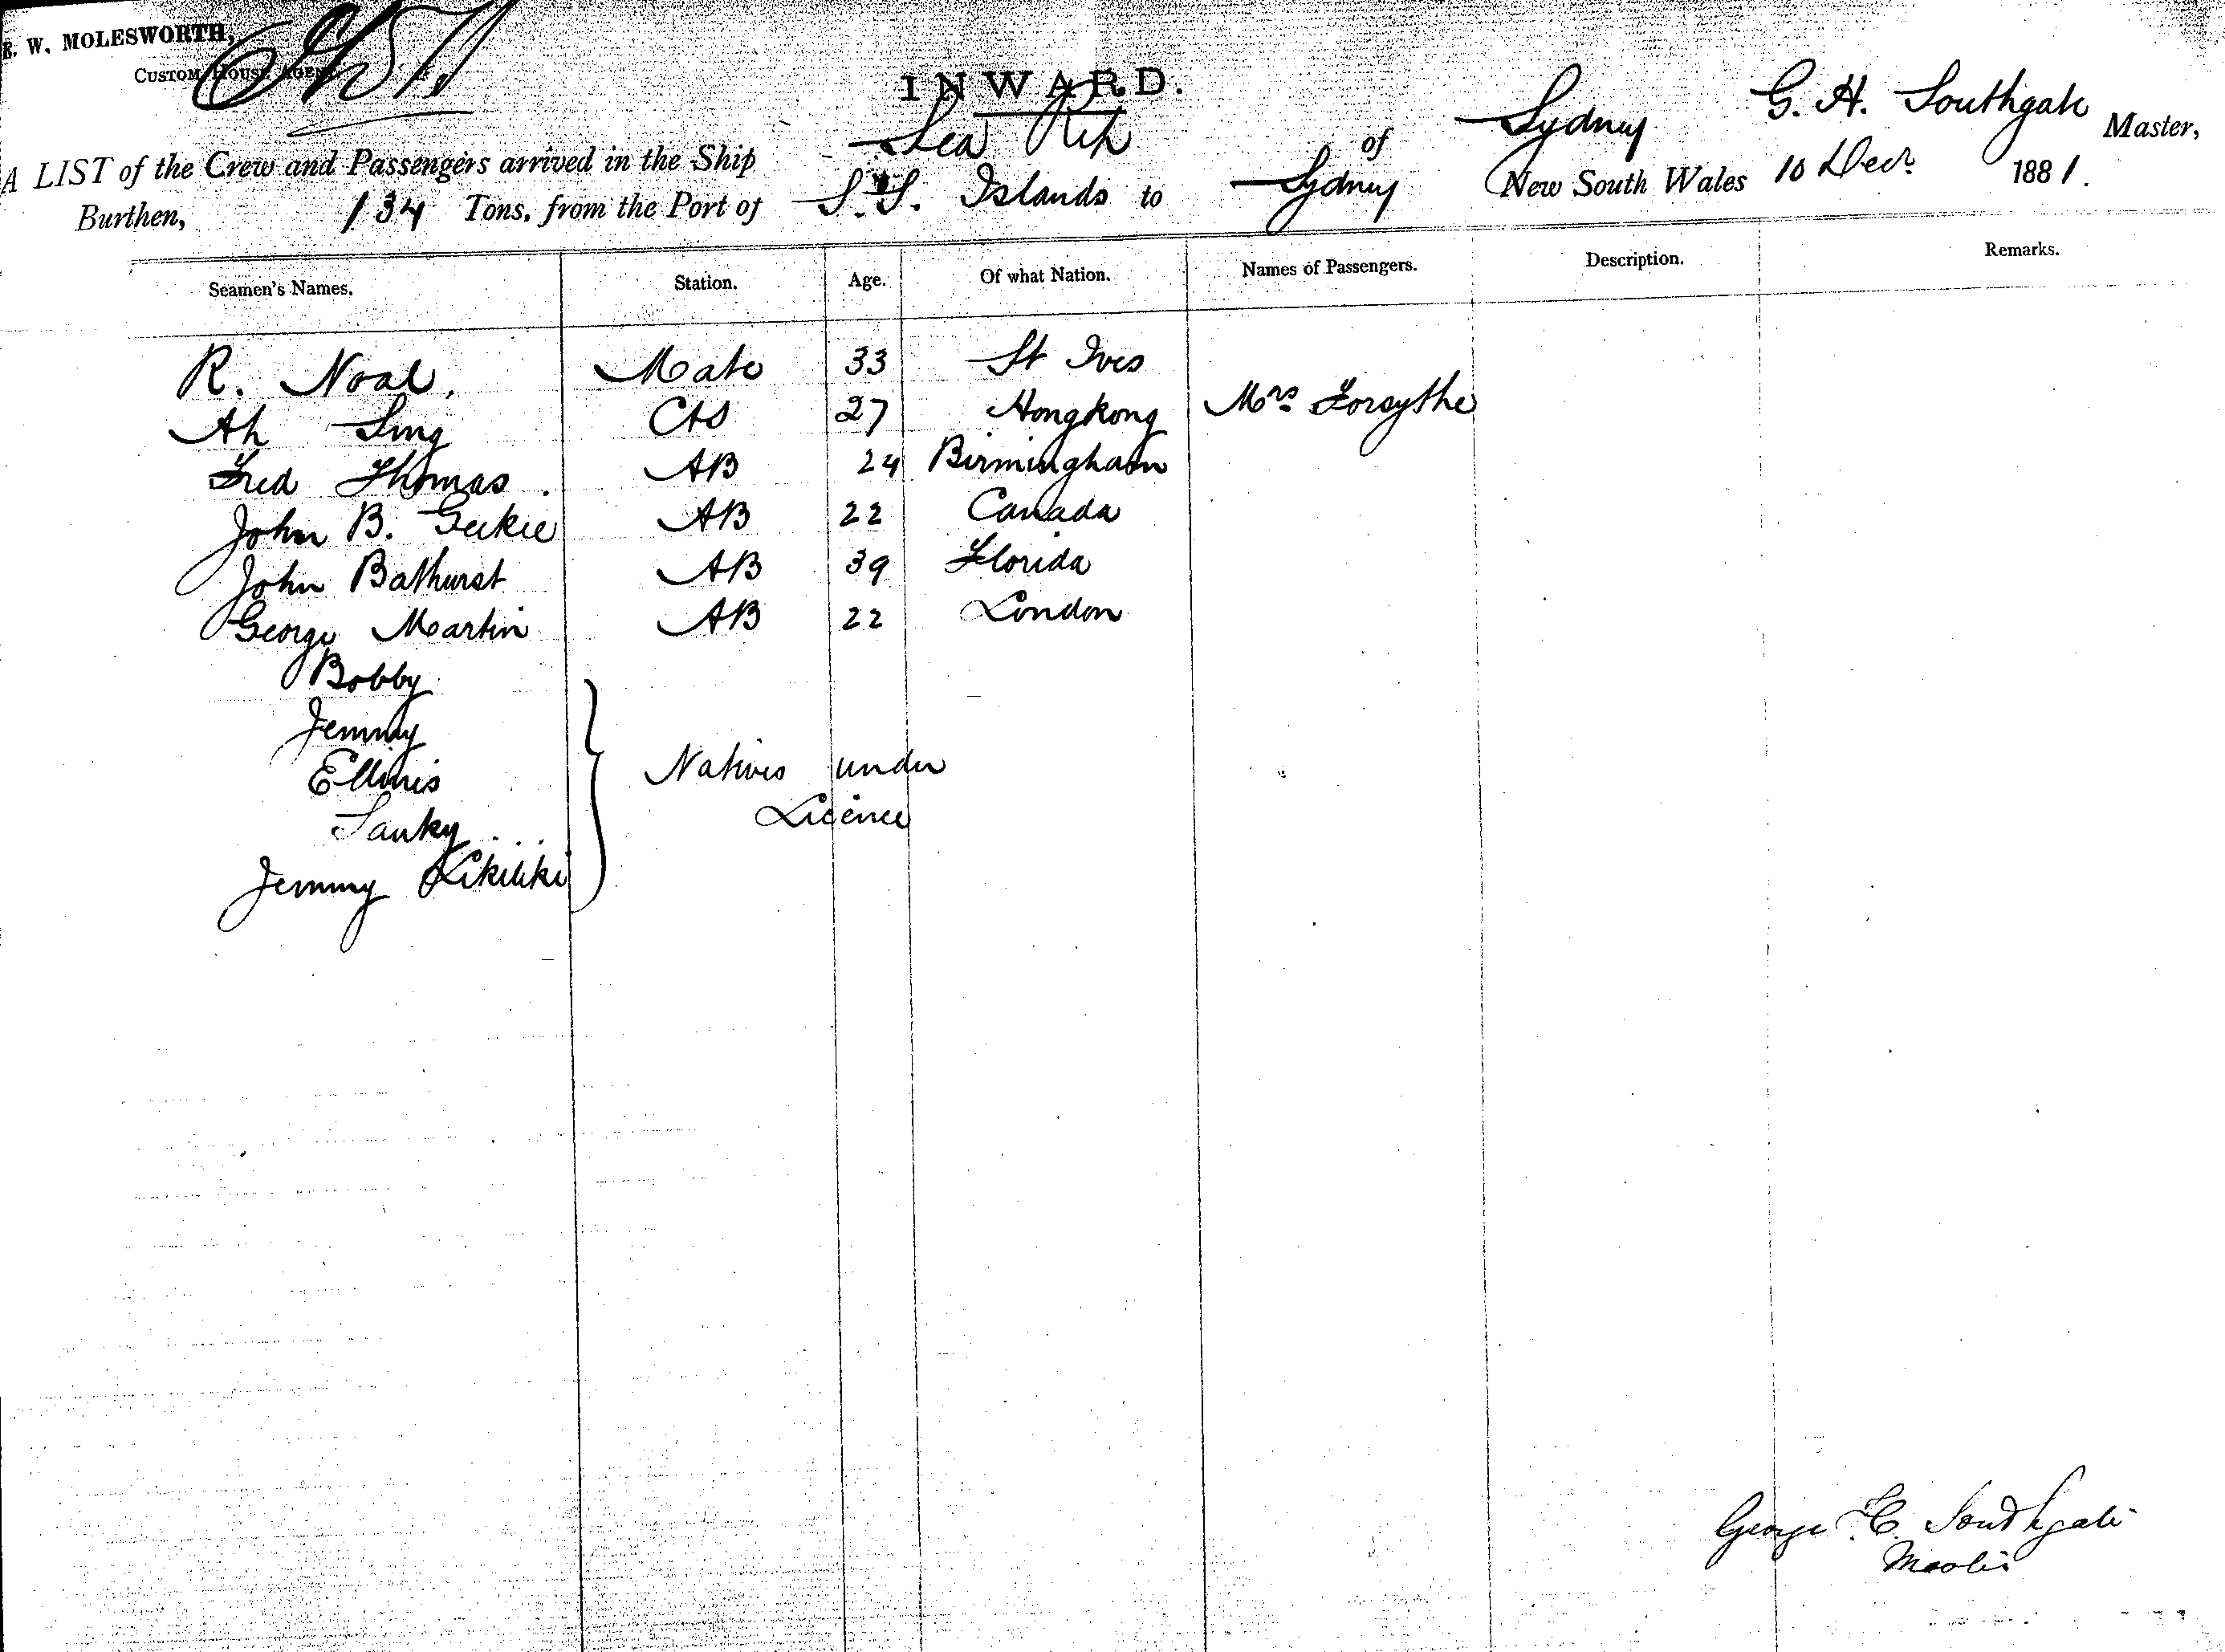 E. W. MOLESWORTH,
CUSTOM HOUSE AGENT
INWARD.
A LIST of the Crew and Passengers arrived in the Ship Sea Rip of Sydney G. H. Southgate Master,
Burthen, 134 Tons, from the Port of S.S. Islands to Sydney New South Wales 10 Decr. 1881.
Seamen's Names. Station. Age. Of what Nation. Names of Passengers. Description. Remarks.
R. Noal. Mate 33 St Ives
Ah Sing C&S 27 Hongkong Mrs Forsythe
Fred Thomas. AB 24 Birmingham
John B. Geekie AB 22 Canada
John Bathurst AB 39 Florida
George Martin AB 22 London
Bobby
Jemmy
Ellinis Natives under
Sanky Licence
Jemmy Kikiliki
George H. Southgate
Master